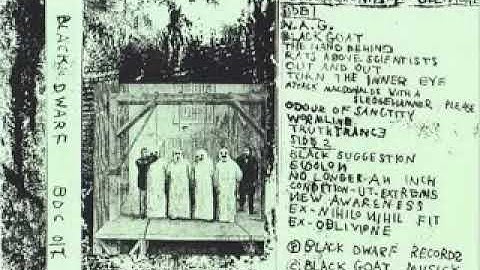 BLACK DWARF BDC 017
SIDE 1
N.A.G.
BLACK GOAT
THE HAND BEHIND
RATS ABOVE SCIENTISTS
OUT AND OUT
TURN THE INNER EYE
ATTACK MACDONALDS WITH A
SLEDGEHAMMER PLEASE
ODOUR OF SANCTITY
WORMLINE
TRUTHTRANCE
SIDE 2
BLACK SUGGESTION
EIDOLON
NO LONGER AN INCH
CONDITION-UT-EXTREMS
NEW AWARENESS
EX-NIHILO NIHIL FIT
EX-OBLIVIONE
Ⓟ BLACK DWARF RECORDS
© BLACK GOAT MUSICK